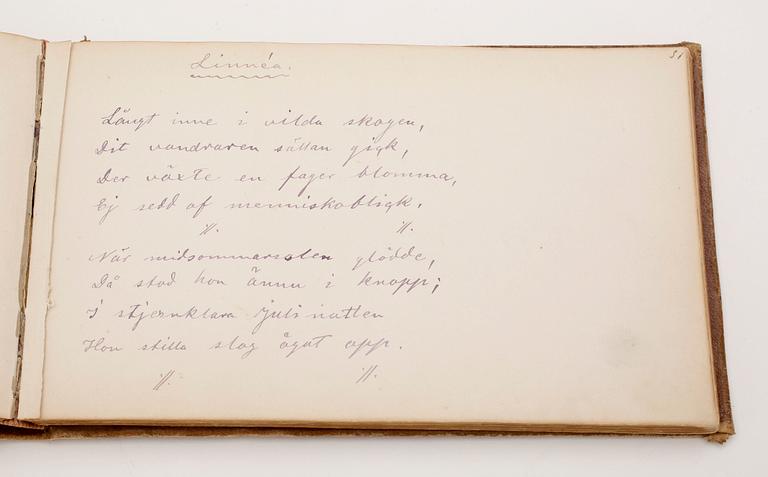 51
Linnéa.
Långt inne i vilda skogen,
Dit vandraren sällan gick,
Der växte en fager blomma,
Ej sedd af menniskoblick.
·//. ·//.
När midsommarsolen glödde,
Då stod hon ännu i knopp;
I stjernklara julinatten
Hon stilla slog ögat opp.
·//. ·//.